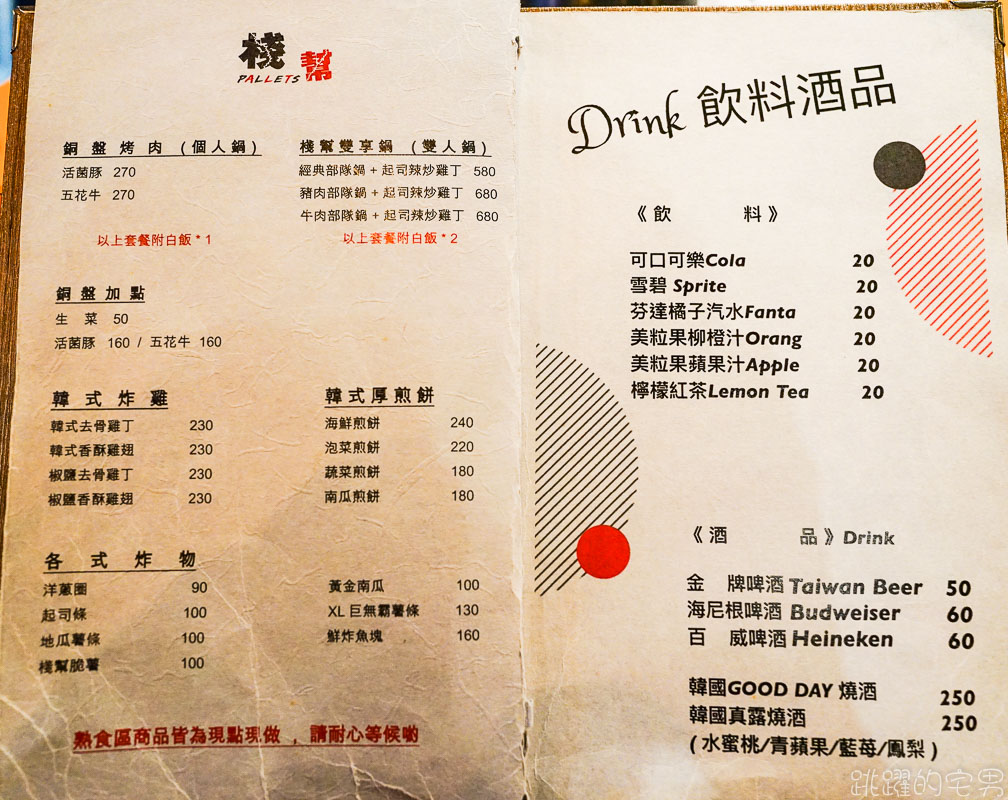 棧幫
PALLETS
銅盤烤肉 (個人鍋)
活菌豚 270
五花牛 270
以上套餐附白飯 * 1
棧幫雙享鍋 (雙人鍋)
經典部隊鍋 + 起司辣炒雞丁 580
豬肉部隊鍋 + 起司辣炒雞丁 680
牛肉部隊鍋 + 起司辣炒雞丁 680
以上套餐附白飯 * 2
銅盤加點
生 菜 50
活菌豚 160 / 五花牛 160
韓式炸雞
韓式去骨雞丁 230
韓式香酥雞翅 230
椒鹽去骨雞丁 230
椒鹽香酥雞翅 230
韓式厚煎餅
海鮮煎餅 240
泡菜煎餅 220
蔬菜煎餅 180
南瓜煎餅 180
各式炸物
洋蔥圈 90
起司條 100
地瓜薯條 100
棧幫脆薯 100
黃金南瓜 100
XL 巨無霸薯條 130
鮮炸魚塊 160
熱食區商品皆為現點現做 , 請耐心等候喲
Drink 飲料酒品
《飲 料》
可口可樂Cola 20
雪碧 Sprite 20
芬達橘子汽水Fanta 20
美粒果柳橙汁Orang 20
美粒果蘋果汁Apple 20
檸檬紅茶Lemon Tea 20
《酒 品》Drink
金 牌啤酒 Taiwan Beer 50
海尼根啤酒 Budweiser 60
百 威啤酒 Heineken 60
韓國GOOD DAY 燒酒 250
韓國真露燒酒 250
(水蜜桃/青蘋果/藍莓/鳳梨)
跳躍的宅男